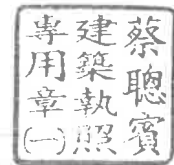 蔡聰賓
建築執照
專用章(一)